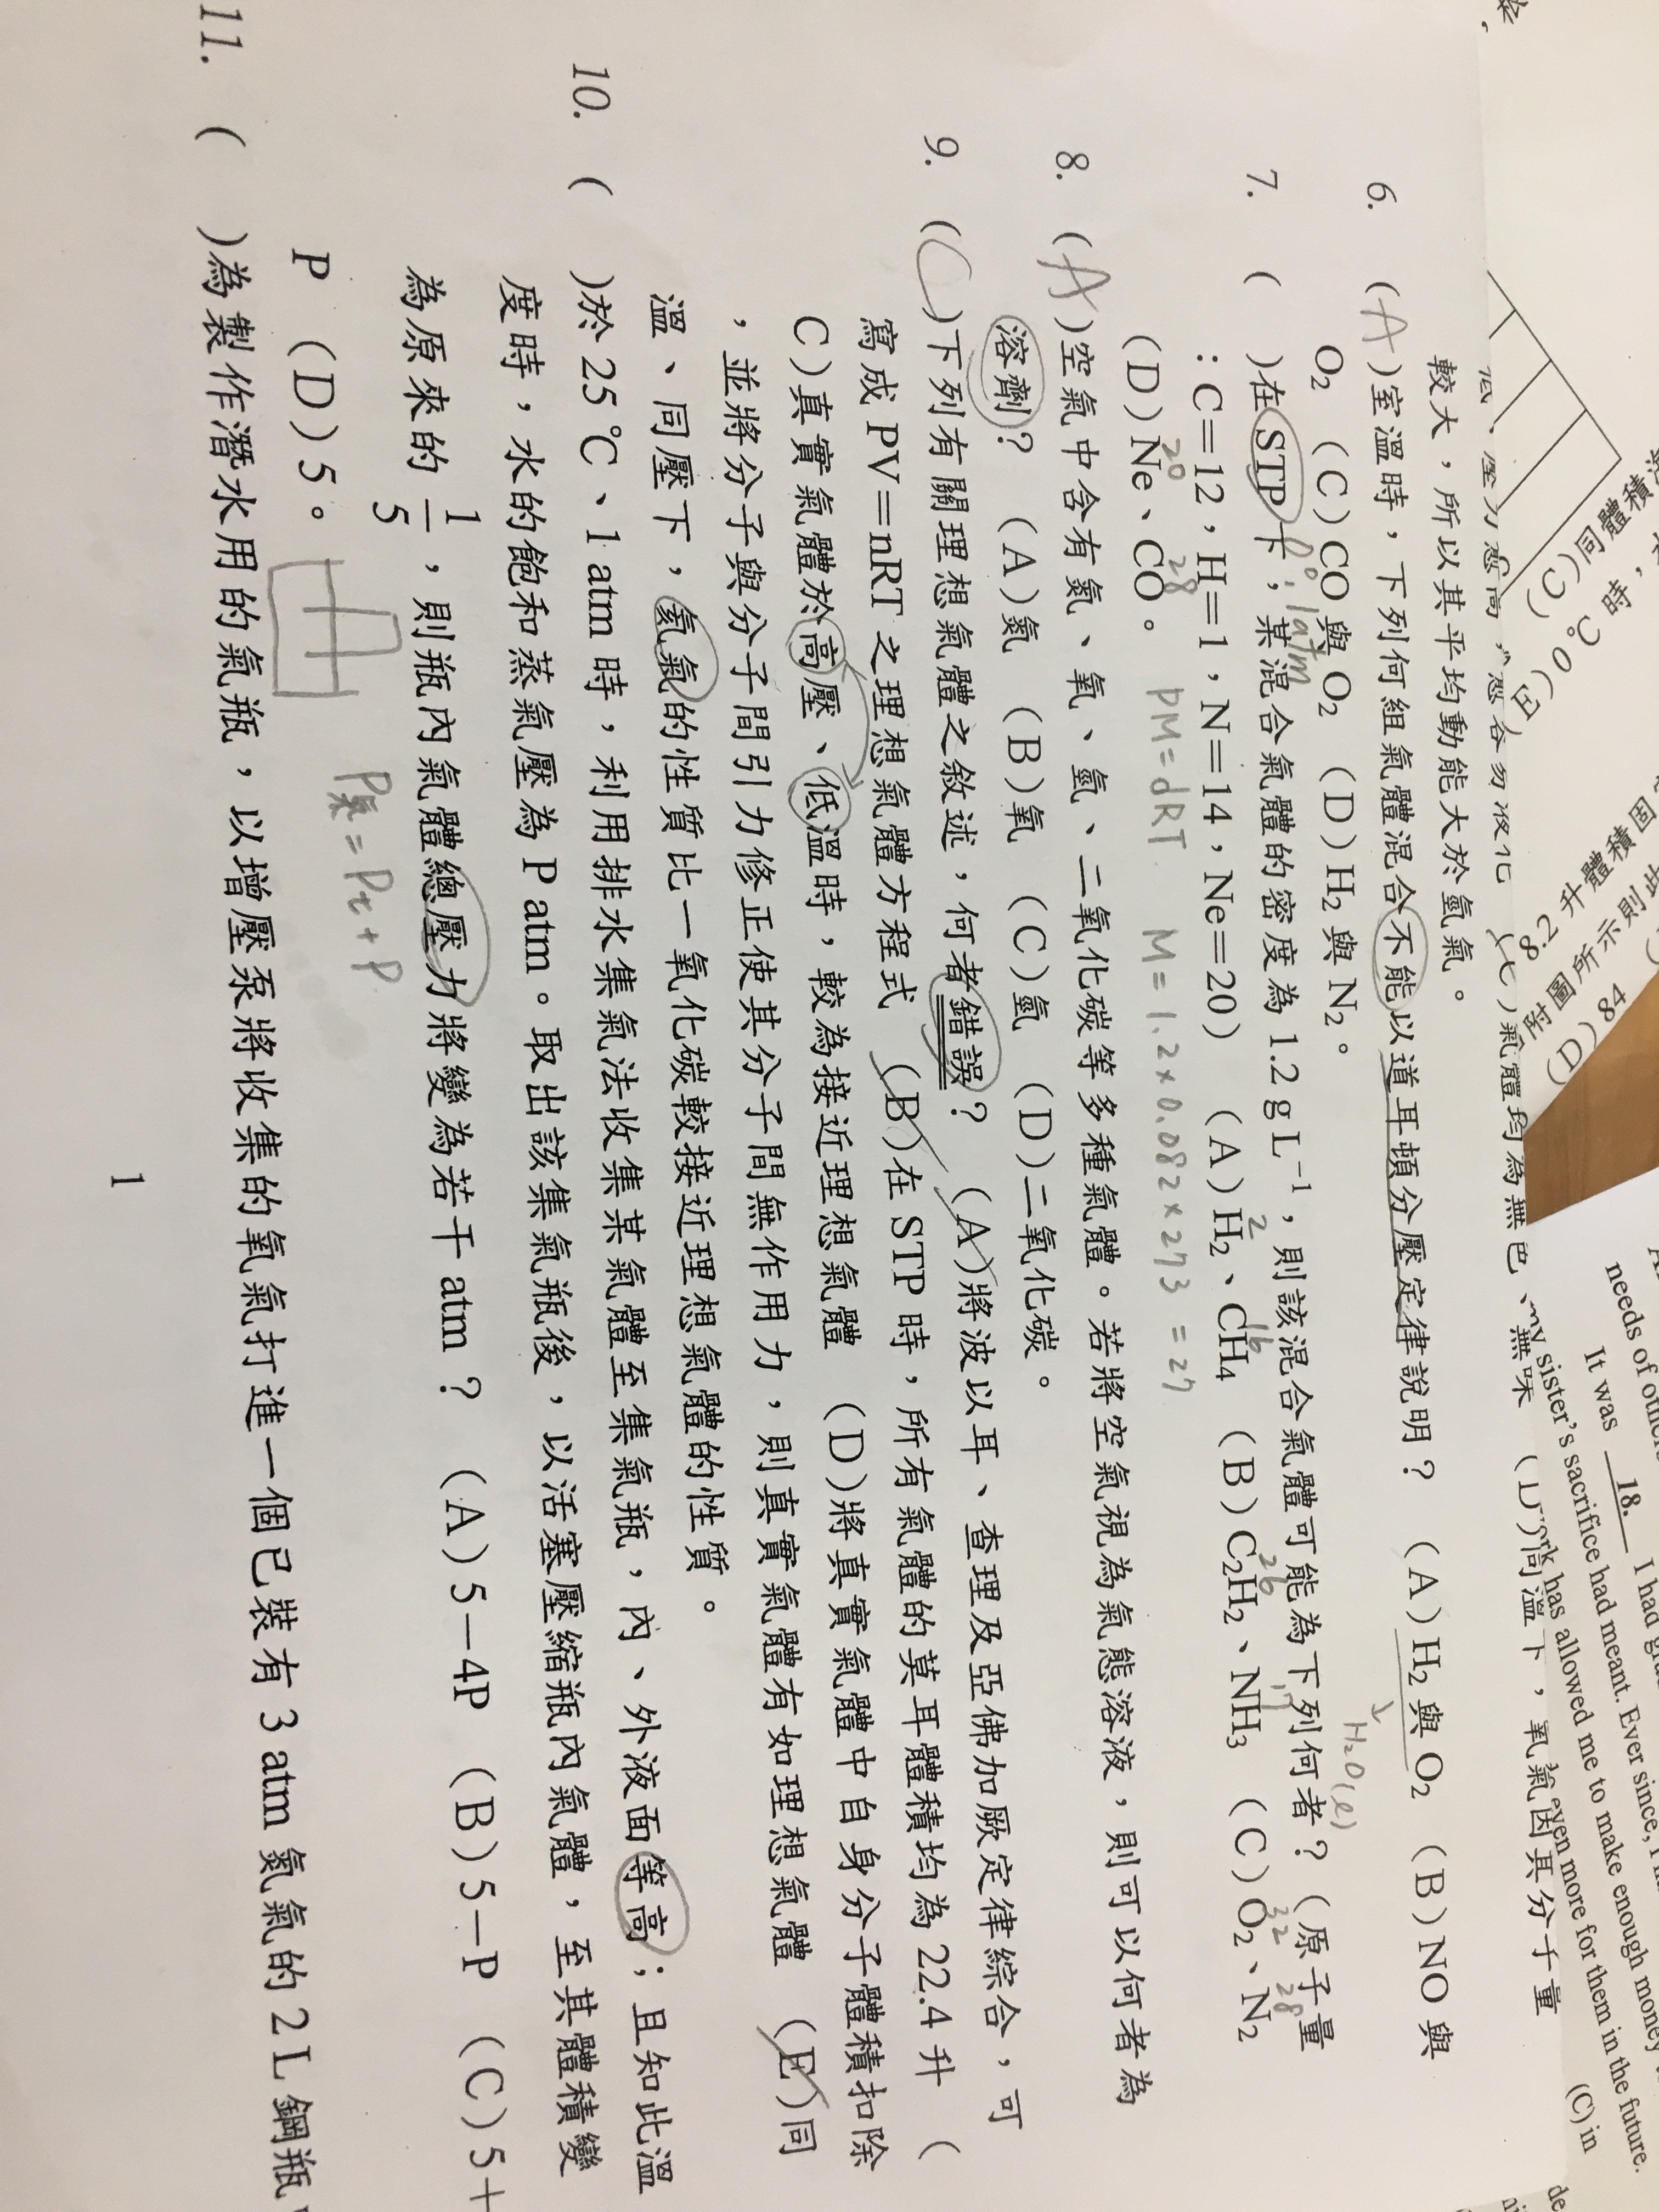 同體積
(C)
0 ℃ 時，
8.2 升體積固
若圖所示則此
(D) 84
低、壓力愈高，愈容易液化 (C)氣體均為無色、無味 (D)同溫下，氧氣因其分子量
較大，所以其平均動能大於氫氣。
6. (A)室溫時，下列何組氣體混合不能以道耳頓分壓定律說明？ (A)H₂與O₂ (B)NO與
H₂O(l)
O₂ (C)CO與O₂ (D)H₂與N₂。
7. ( )在STP下，某混合氣體的密度為1.2 g L⁻¹，則該混合氣體可能為下列何者？(原子量
P: 1atm
：C＝12，H＝1，N＝14，Ne＝20) (A)H₂、CH₄ (B)C₂H₂、NH₃ (C)O₂、N₂
2 16 26 17 32 28
(D)Ne、CO。
20 28
PM=dRT M=1.2×0.082×273=27
8. (A)空氣中含有氮、氧、氬、二氧化碳等多種氣體。若將空氣視為氣態溶液，則可以何者為
溶劑？ (A)氮 (B)氧 (C)氬 (D)二氧化碳。
9. (C)下列有關理想氣體之敘述，何者錯誤？ (A)將波以耳、查理及亞佛加厥定律綜合，可
寫成PV＝nRT之理想氣體方程式 (B)在STP時，所有氣體的莫耳體積均為22.4升 (
C)真實氣體於高壓、低溫時，較為接近理想氣體 (D)將真實氣體中自身分子體積扣除
，並將分子與分子間引力修正使其分子間無作用力，則真實氣體有如理想氣體 (E)同
溫、同壓下，氦氣的性質比一氧化碳較接近理想氣體的性質。
10. ( )於25 ℃、1 atm時，利用排水集氣法收集某氣體至集氣瓶，內、外液面等高；且知此溫
度時，水的飽和蒸氣壓為P atm。取出該集氣瓶後，以活塞壓縮瓶內氣體，至其體積變
為原來的1/5，則瓶內氣體總壓力將變為若干atm？ (A)5－4P (B)5－P (C)5＋
P (D)5。
P氣=Pt+P
11. ( )為製作潛水用的氣瓶，以增壓泵將收集的氧氣打進一個已裝有3 atm氮氣的2 L鋼瓶
1
needs of others
It was 18. I had
my sister's sacrifice had meant. Ever since, I
work has allowed me to make enough money
even more for them in the future.
(C) in